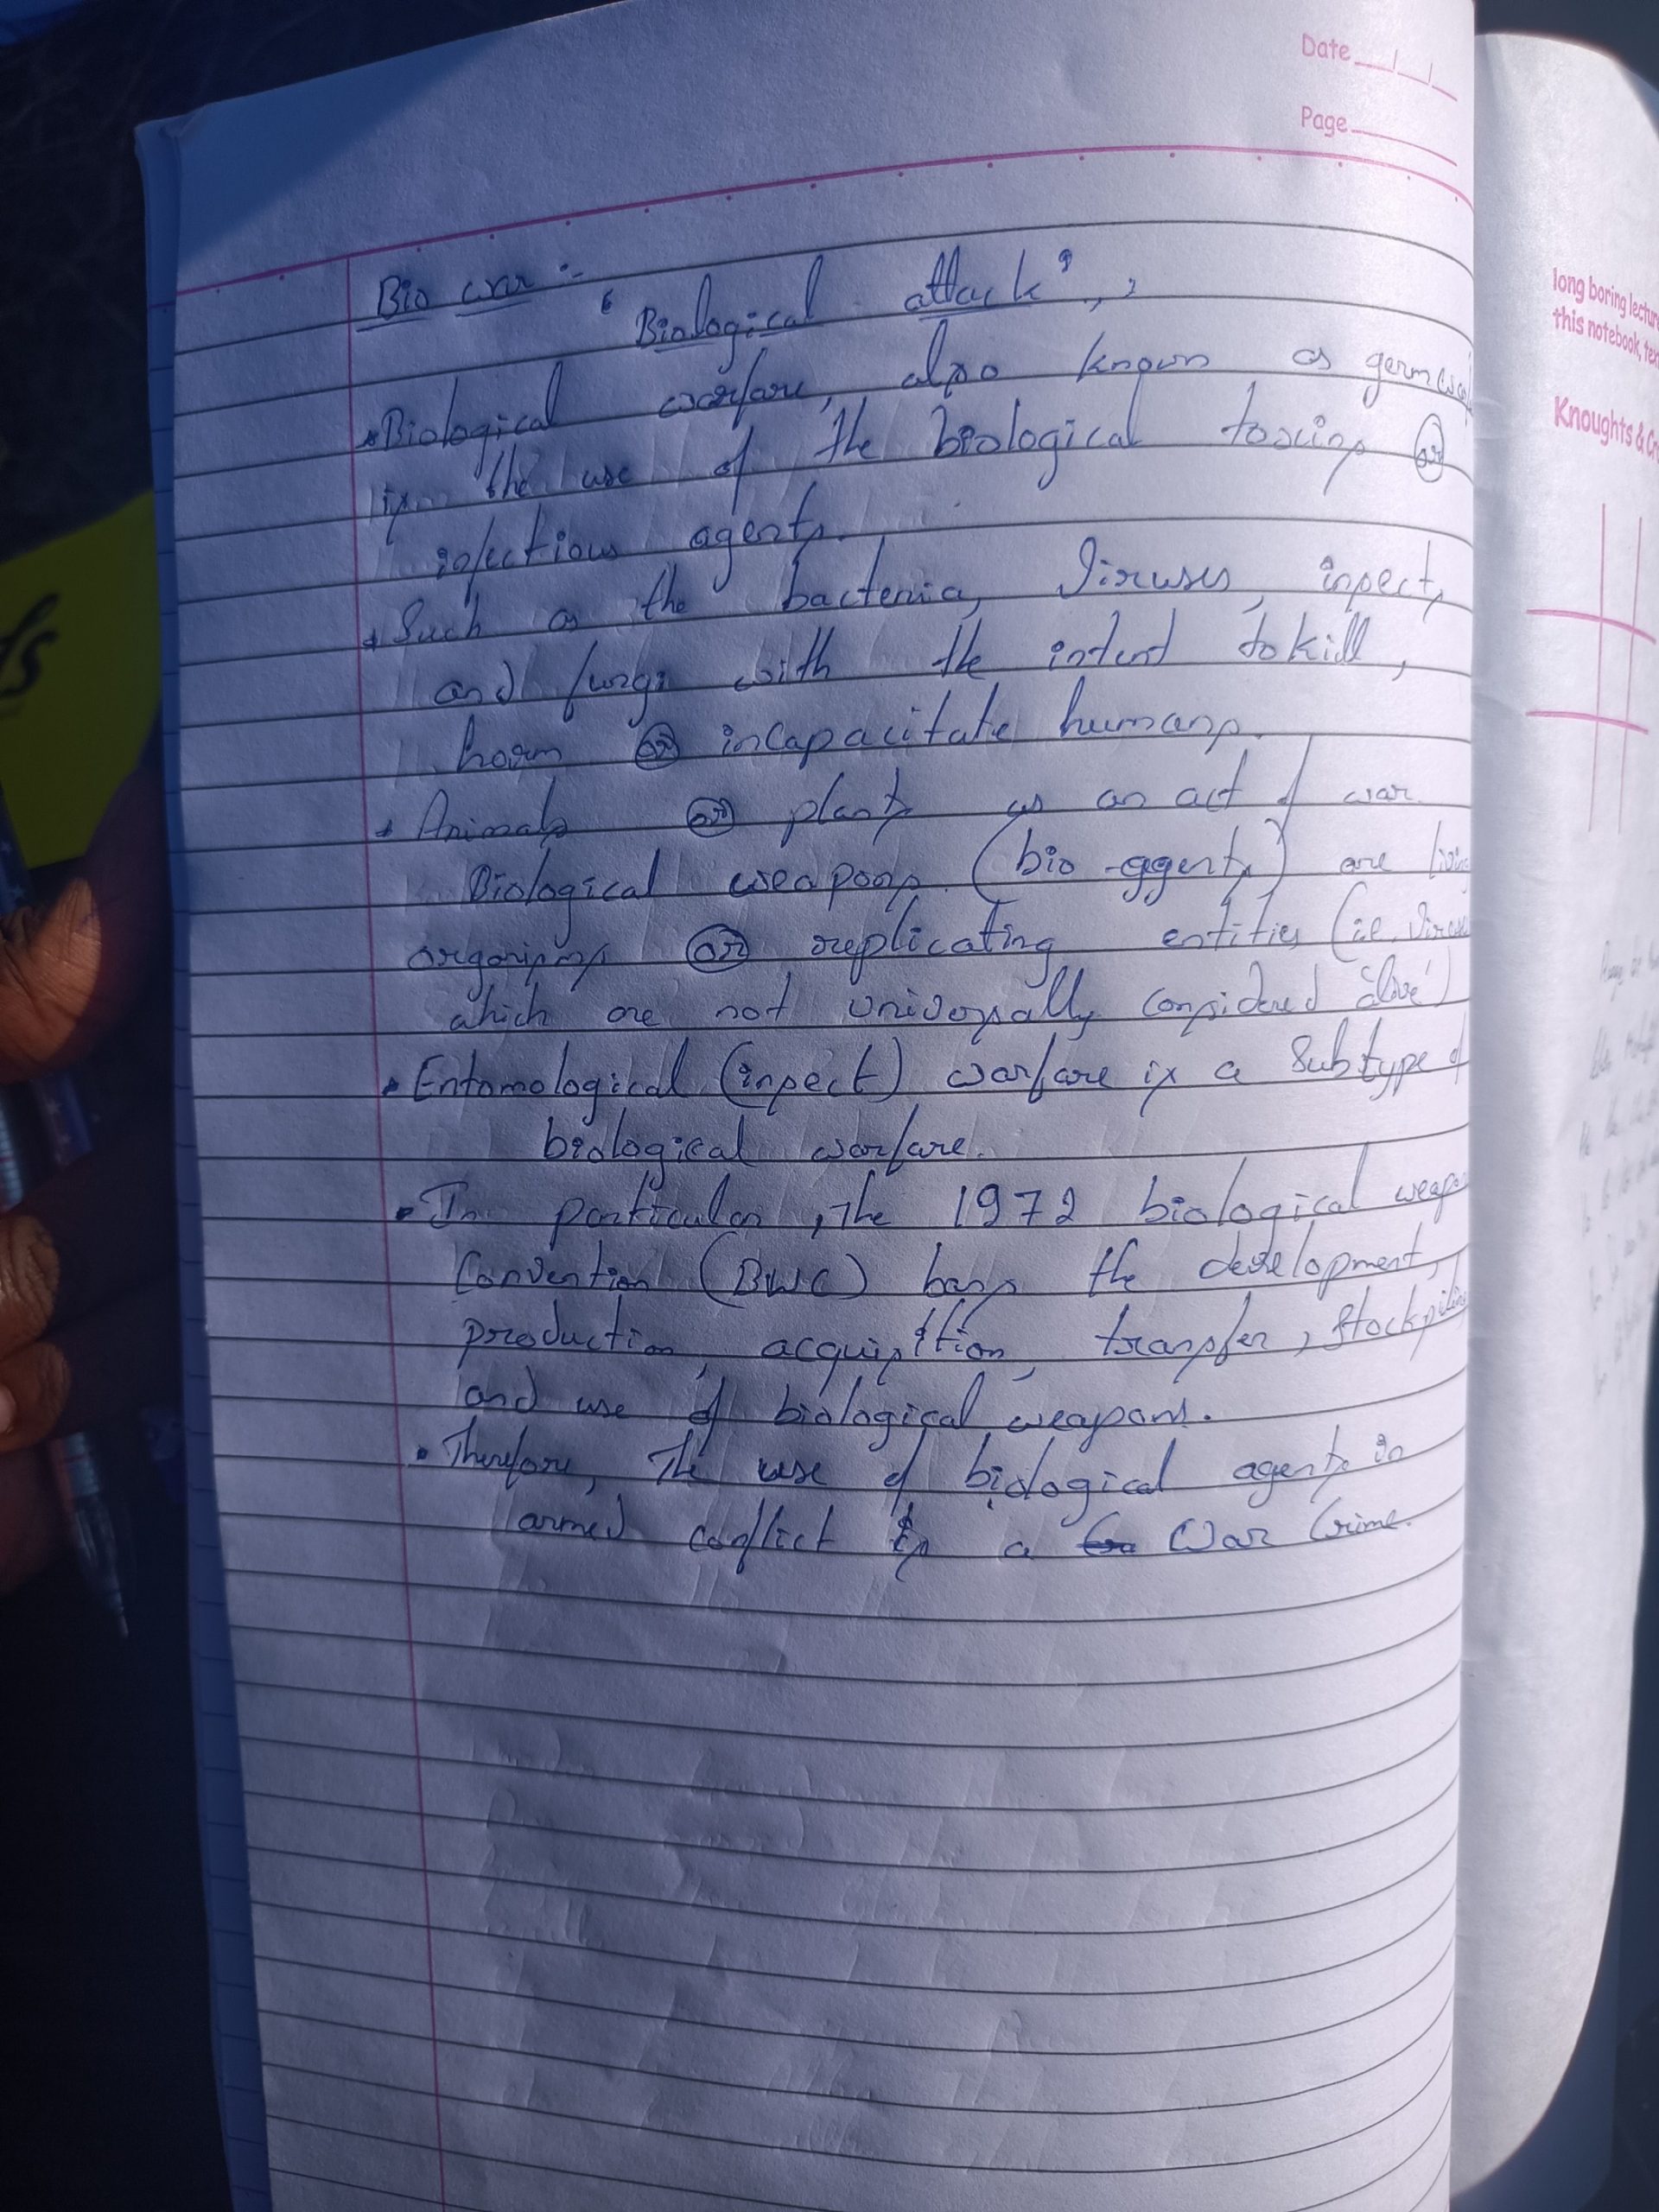 Date
Page
Bio war :-
'Biological attack',,
Biological warfare, also known as germ
is the use of the biological toxins or
infectious agents.
Such as the bacteria, Viruses, insect,
and fungi with the intent to kill,
harm or incapacitate humans.
Animals or plants as an act of war.
Biological weapons. (bio-agents) are living
organisms or replicating entities (i.e. Viruse
which are not universally considered alive')
Entomological (insect) warfare is a Subtype of
biological warfare.
In particular, the 1972 biological weapo
Convention (BWC) bans the development,
production, acquisition, transfer, stockpiling
and use of biological weapons.
Therefore, The use of biological agents in
armed conflict is a War Crime.
long boring lectur
this notebook, te
Knoughts & Cr